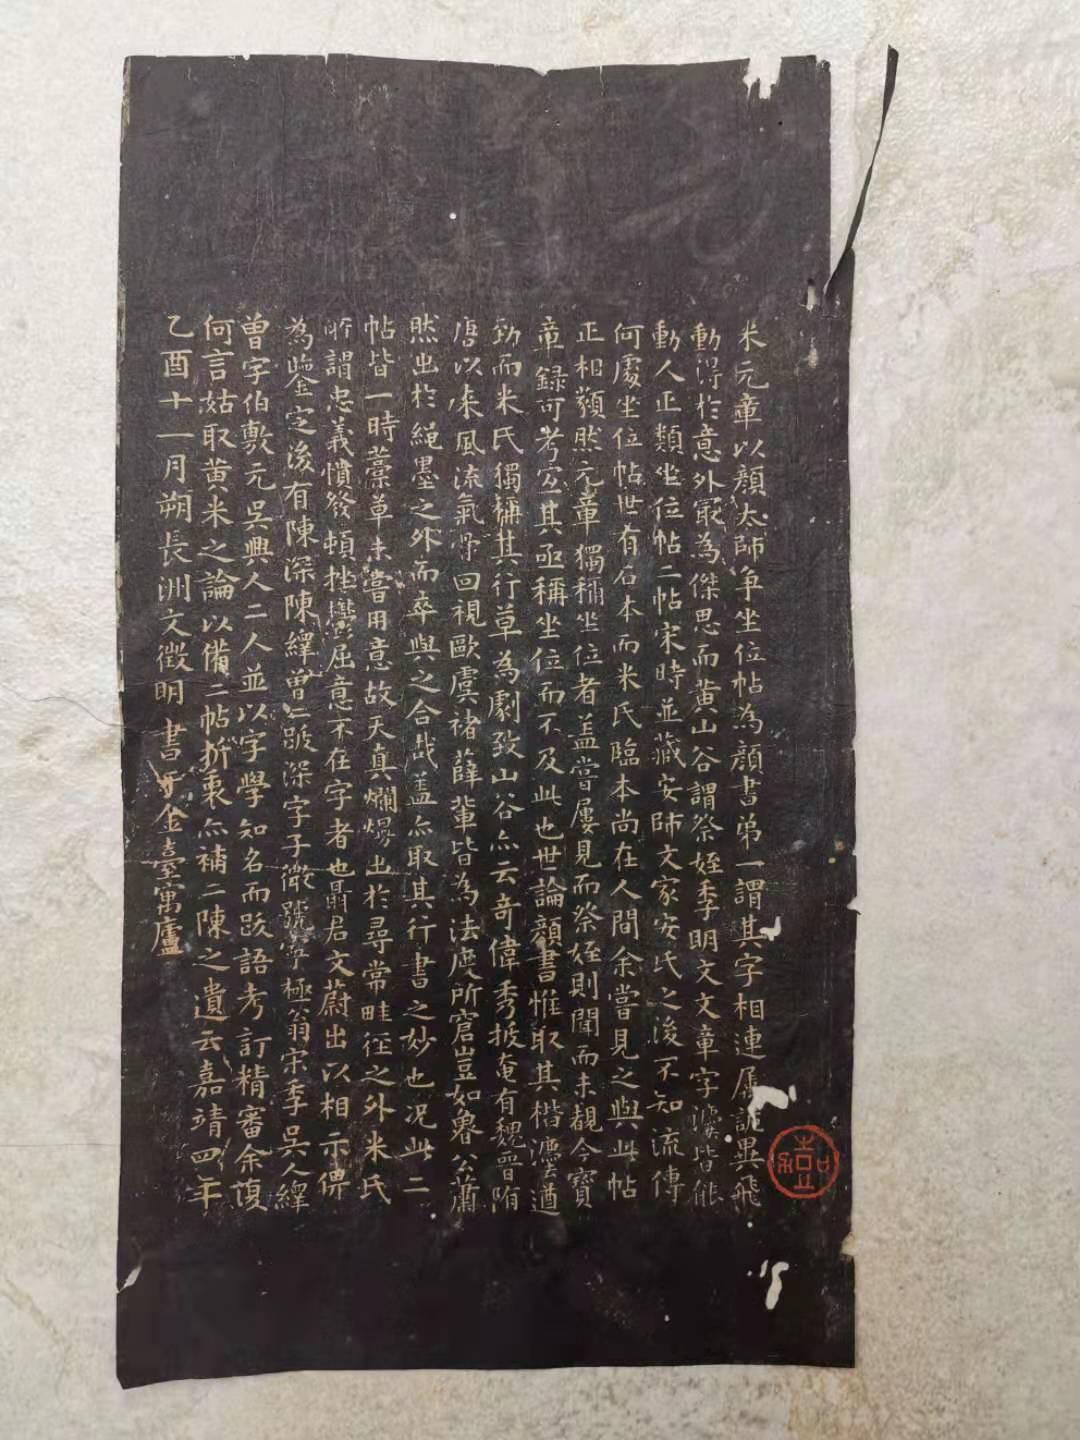 米元章以顏太師争坐位帖為顏書弟一謂其字相連屬詭異飛
動得於意外最為傑思而黄山谷謂祭姪季明文文章字法皆能
動人正類坐位帖二帖宋時並藏安師文家安氏之後不知流傳
何處坐位帖世有石本而米氏臨本尚在人間余嘗見之與此帖
正相類然元章獨稱坐位者盖嘗屢見而祭姪則聞而未覩今寶
章錄可考宜其亟稱坐位而不及此也世論顏書惟取其楷法遒
勁而米氏獨稱其行草為劇致山谷亦云奇偉秀拔奄有魏晉隋
唐以來風流氣骨回視歐虞褚薛輩皆為法度所窘豈如魯公蕭
然出於繩墨之外而卒與之合哉盖亦取其行書之妙也况此二
帖皆一時藁草未嘗用意故天真爛熳出於尋常畦徑之外米氏
所謂忠義憤發頓挫鬱屈意不在字者也聶君文蔚出以相示俾
為鑒定之後有陳深陳繹曾二跋深字子微號寧極翁宋季吳人繹
曾字伯敷元吳興人二人並以字學知名而跋語考訂精審余復
何言姑取黄米之論以備二帖折衷亦補二陳之遺云嘉靖四年
乙酉十一月朔長洲文徵明書于金臺寓廬